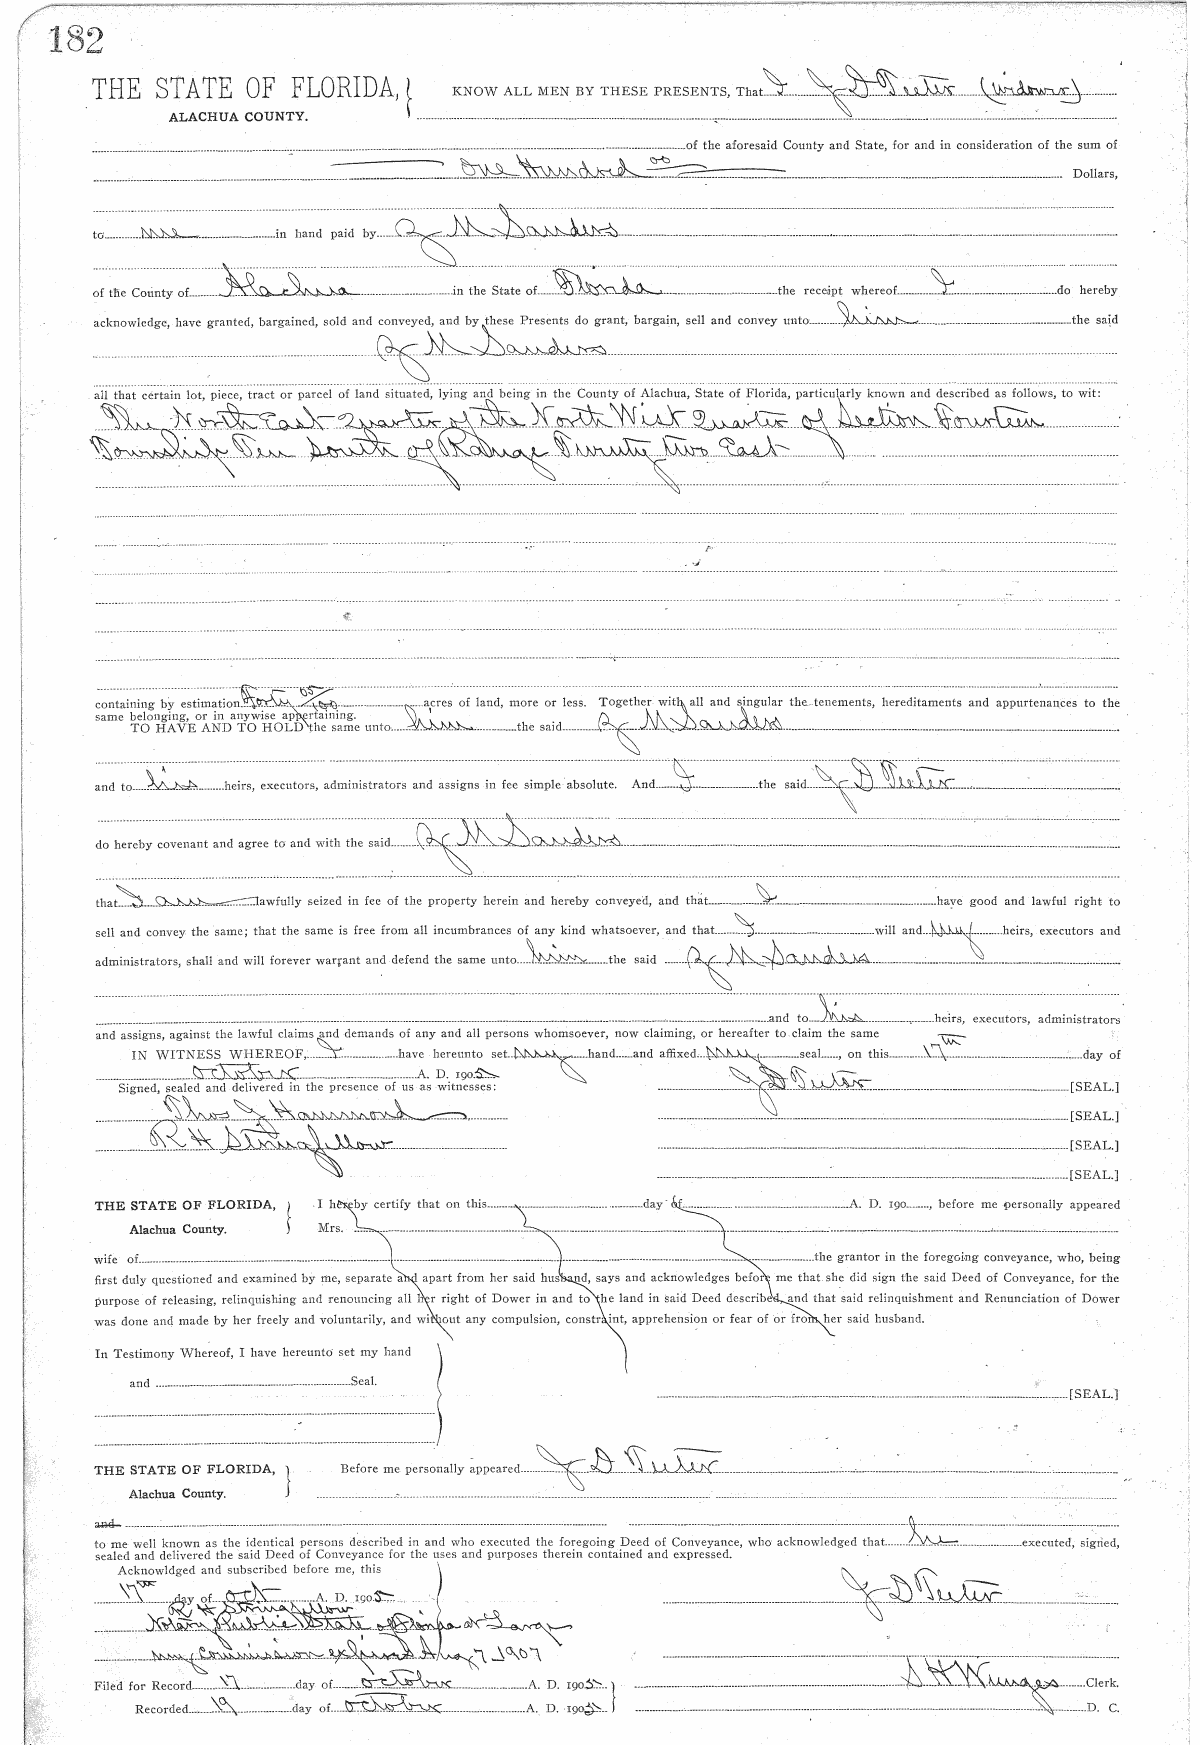 182
THE STATE OF FLORIDA, KNOW ALL MEN BY THESE PRESENTS, That I J D Teeter (widower)
ALACHUA COUNTY.
of the aforesaid County and State, for and in consideration of the sum of
One Hundred 00 Dollars,
to me in hand paid by M Sanders
of the County of Alachua in the State of Florida the receipt whereof I do hereby
acknowledge, have granted, bargained, sold and conveyed, and by these Presents do grant, bargain, sell and convey unto him the said
M Sanders
all that certain lot, piece, tract or parcel of land situated, lying and being in the County of Alachua, State of Florida, particularly known and described as follows, to wit:
The North East Quarter of the North West Quarter of Section Fourteen
Township Ten South of Range Twenty two East
containing by estimation Forty 05/100 acres of land, more or less. Together with all and singular the tenements, hereditaments and appurtenances to the
same belonging, or in anywise appertaining.
TO HAVE AND TO HOLD the same unto him the said M Sanders
and to his heirs, executors, administrators and assigns in fee simple absolute. And I the said J D Teeter
do hereby covenant and agree to and with the said M Sanders
that I am lawfully seized in fee of the property herein and hereby conveyed, and that I have good and lawful right to
sell and convey the same; that the same is free from all incumbrances of any kind whatsoever, and that I will and my heirs, executors and
administrators, shall and will forever warrant and defend the same unto him the said M Sanders
and to his heirs, executors, administrators
and assigns, against the lawful claims and demands of any and all persons whomsoever, now claiming, or hereafter to claim the same
IN WITNESS WHEREOF, I have hereunto set my hand and affixed my seal, on this 17th day of
October A. D. 1905
Signed, sealed and delivered in the presence of us as witnesses: J D Teeter [SEAL.]
Thos J Hammond [SEAL.]
R H Stringfellow [SEAL.]
[SEAL.]
THE STATE OF FLORIDA, I hereby certify that on this day of A. D. 190 , before me personally appeared
Alachua County. Mrs.
wife of the grantor in the foregoing conveyance, who, being
first duly questioned and examined by me, separate and apart from her said husband, says and acknowledges before me that she did sign the said Deed of Conveyance, for the
purpose of releasing, relinquishing and renouncing all her right of Dower in and to the land in said Deed described, and that said relinquishment and Renunciation of Dower
was done and made by her freely and voluntarily, and without any compulsion, constraint, apprehension or fear of or from her said husband.
In Testimony Whereof, I have hereunto set my hand
and Seal.
[SEAL.]
THE STATE OF FLORIDA, Before me personally appeared J D Teeter
Alachua County.
and
to me well known as the identical persons described in and who executed the foregoing Deed of Conveyance, who acknowledged that he executed, signed,
sealed and delivered the said Deed of Conveyance for the uses and purposes therein contained and expressed.
Acknowldged and subscribed before me, this
17th day of Oct A. D. 1905 J D Teeter
R H Stringfellow
Notary Public State of Florida at Large
my commission expires Aug 7 1907
Filed for Record 17 day of October A. D. 1905 S H Wienges Clerk.
Recorded 19 day of October A. D. 1905 D. C.